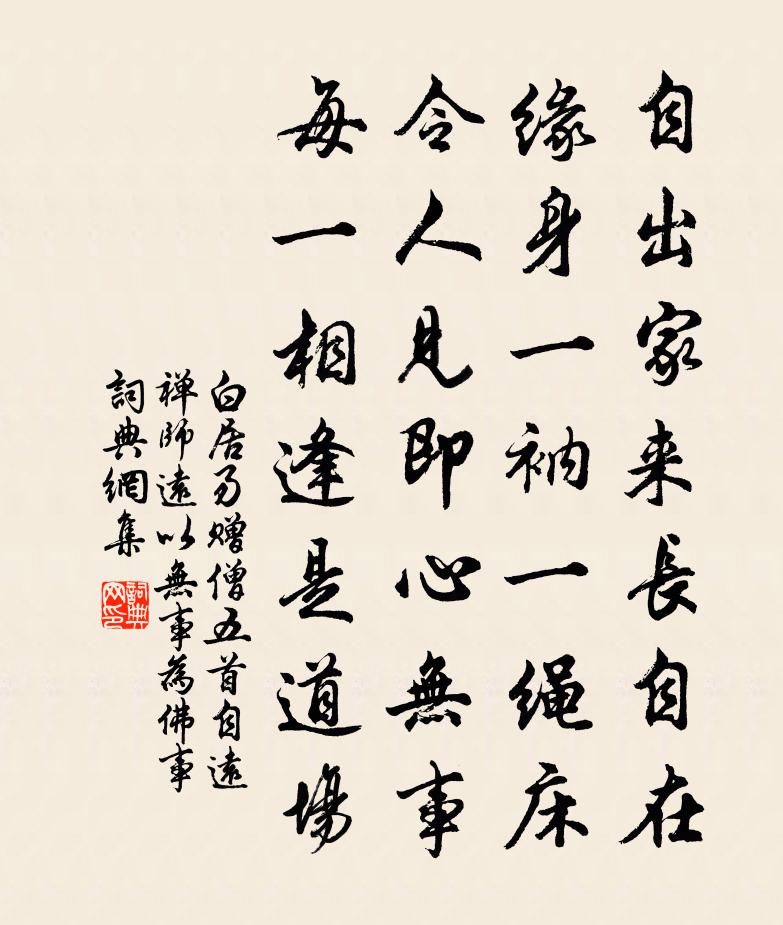 自出家来長自在
緣身一衲一绳床
令人見即心無事
每一相逢是道場
白居易贈僧五首自遠
禅師遠以無事為佛事
詞典網集
詞典網印